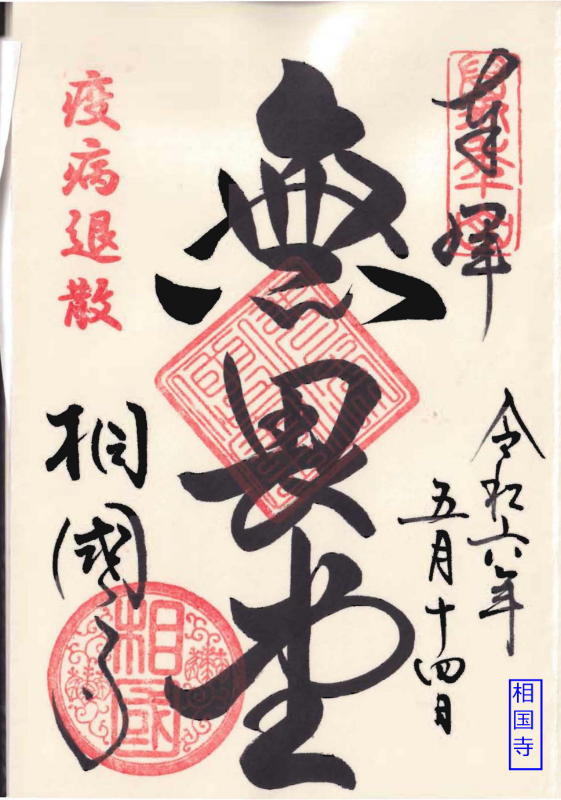 奉拝
令和六年
五月十四日
無畏堂
疫病退散
相國寺
相國
相国寺